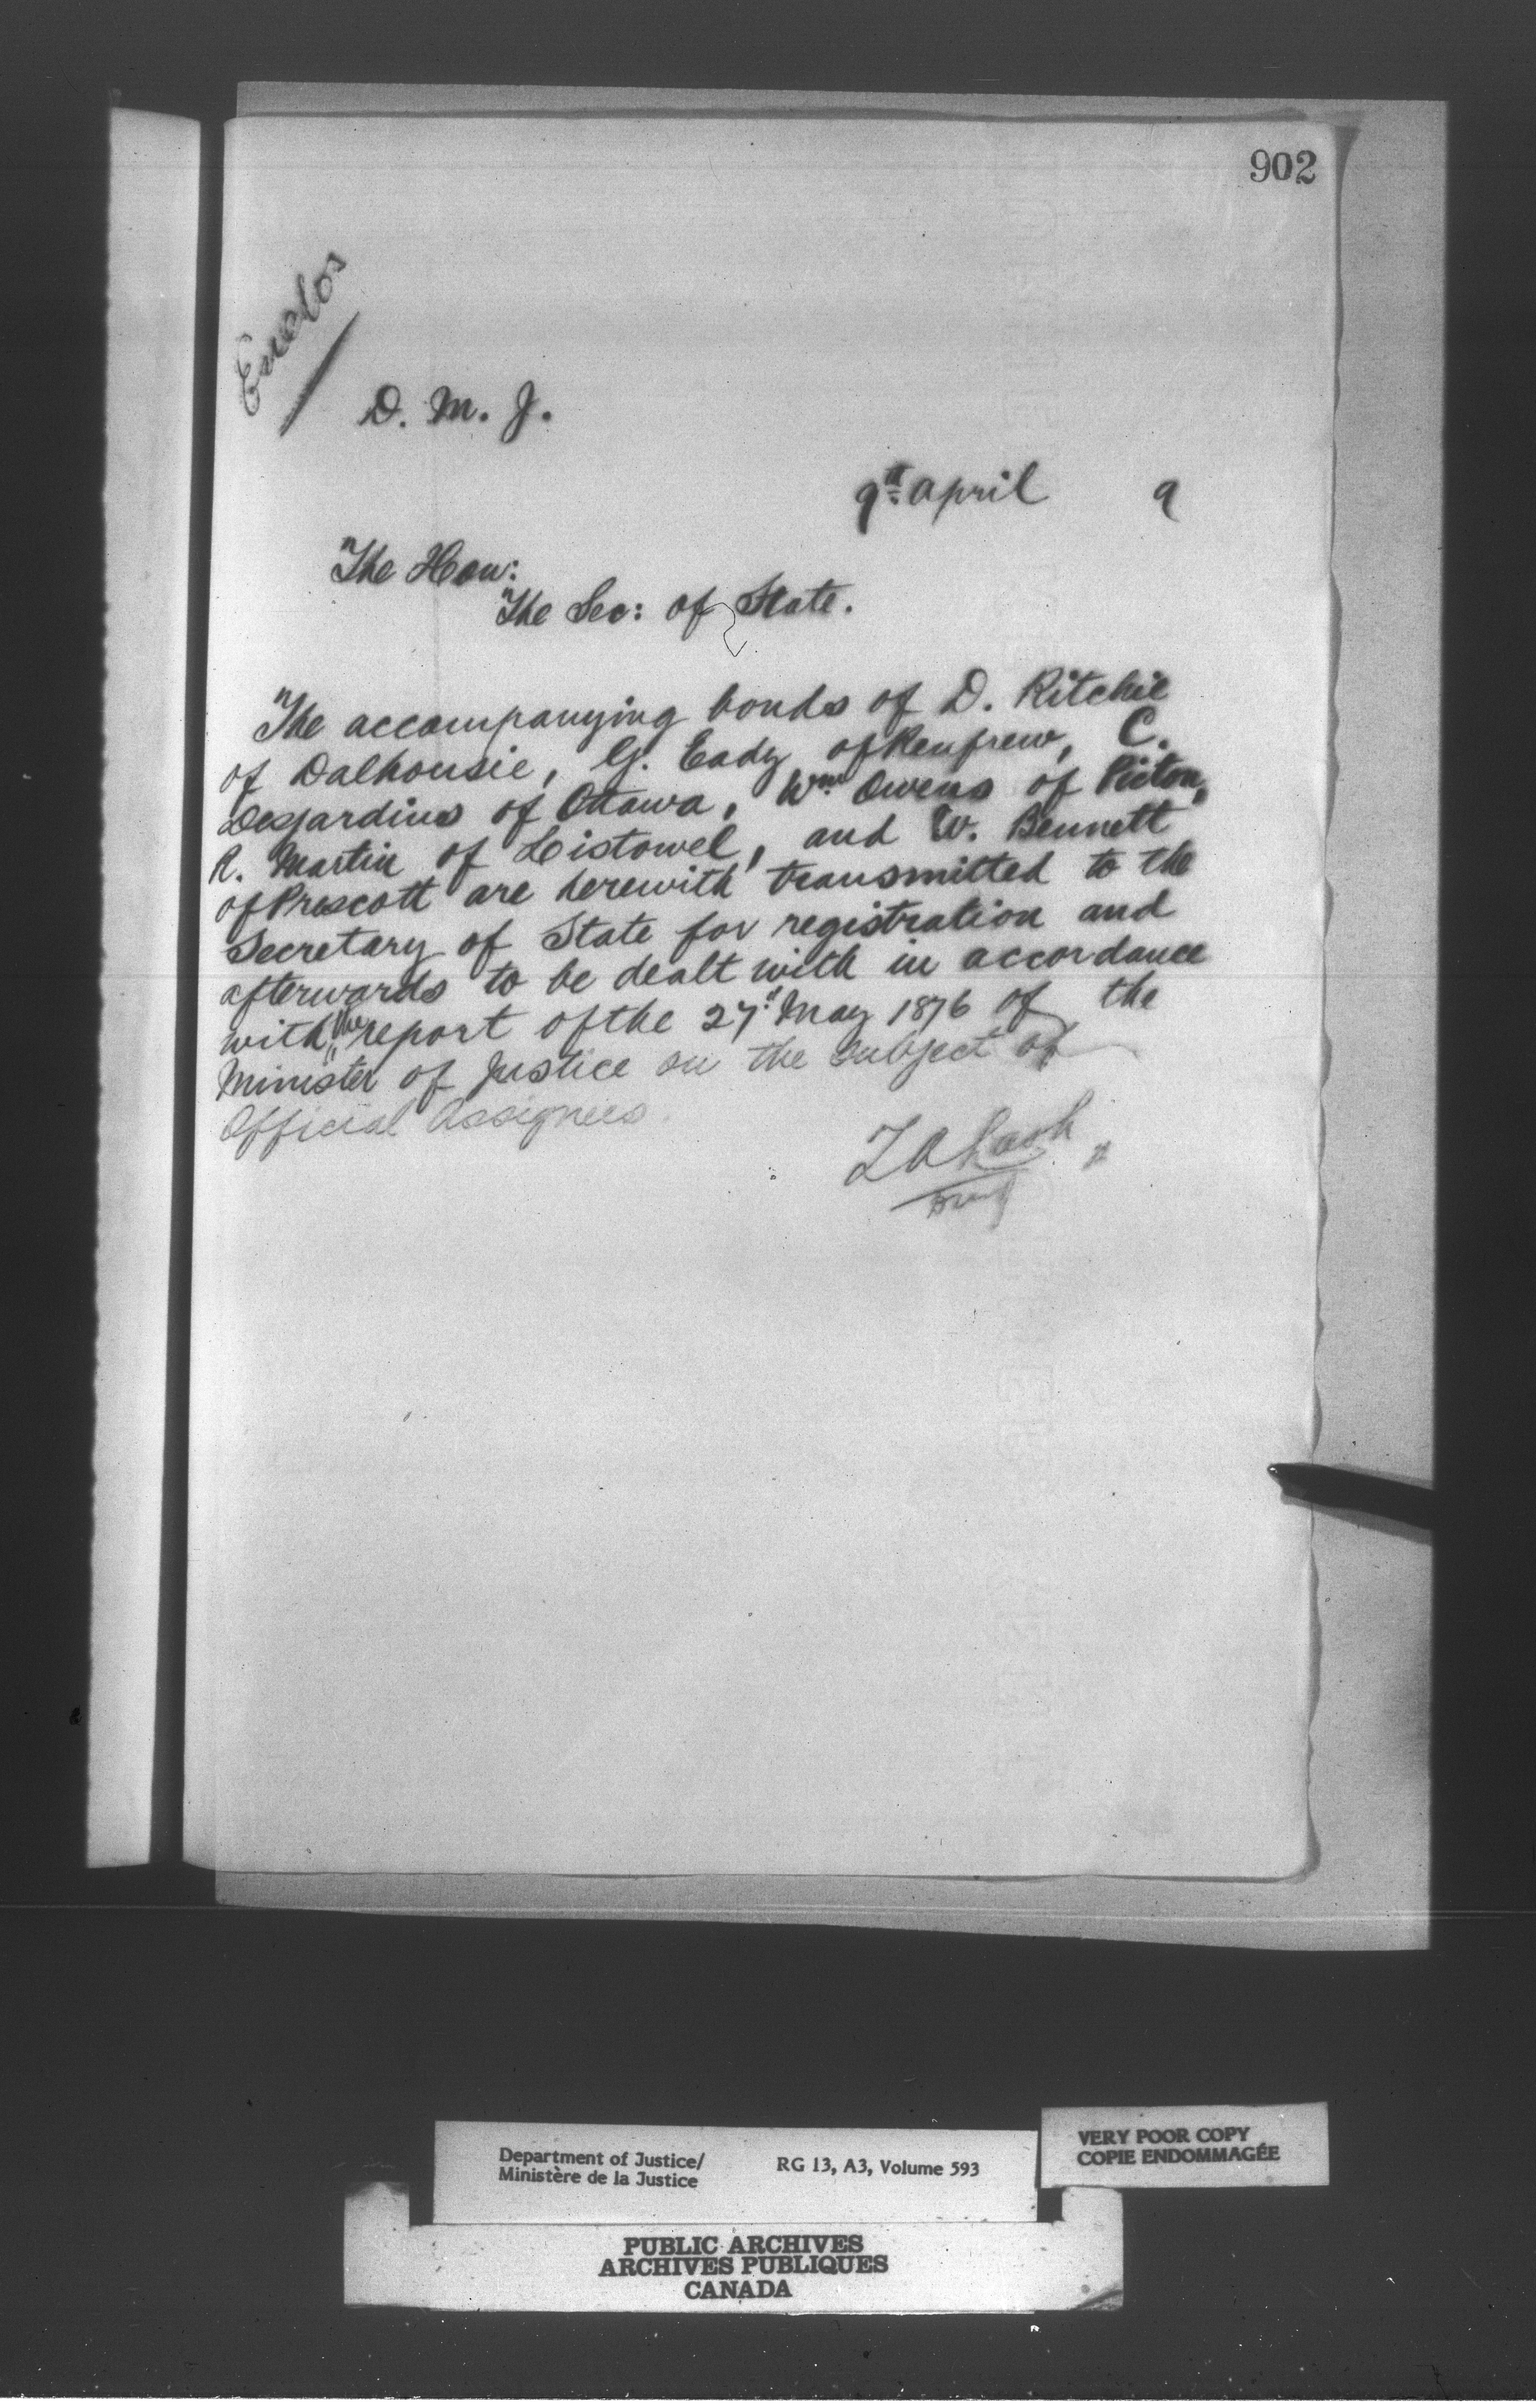 902
Enclos
D. M. J.
9th April 9
The Hon:
The Sec: of State.
The accompanying bonds of D. Ritchie
of Dalhousie, G. Eady of Renfrew, C.
Desjardins of Ottawa, Wm Owens of Picton,
R. Martin of Listowel, and W. Bennett
of Prescott are herewith transmitted to the
Secretary of State for registration and
afterwards to be dealt with in accordance
with the report of the 27th May 1876 of the
Minister of Justice on the subject of
Official Assignees.
Z A Lash
DMJ
Department of Justice/
Ministère de la Justice
RG 13, A3, Volume 593
VERY POOR COPY
COPIE ENDOMMAGÉE
PUBLIC ARCHIVES
ARCHIVES PUBLIQUES
CANADA